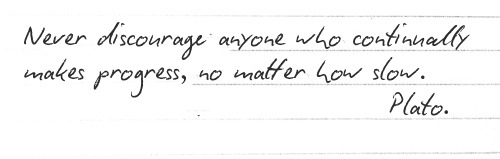 Never discourage anyone who continually
makes progress, no matter how slow.
Plato.